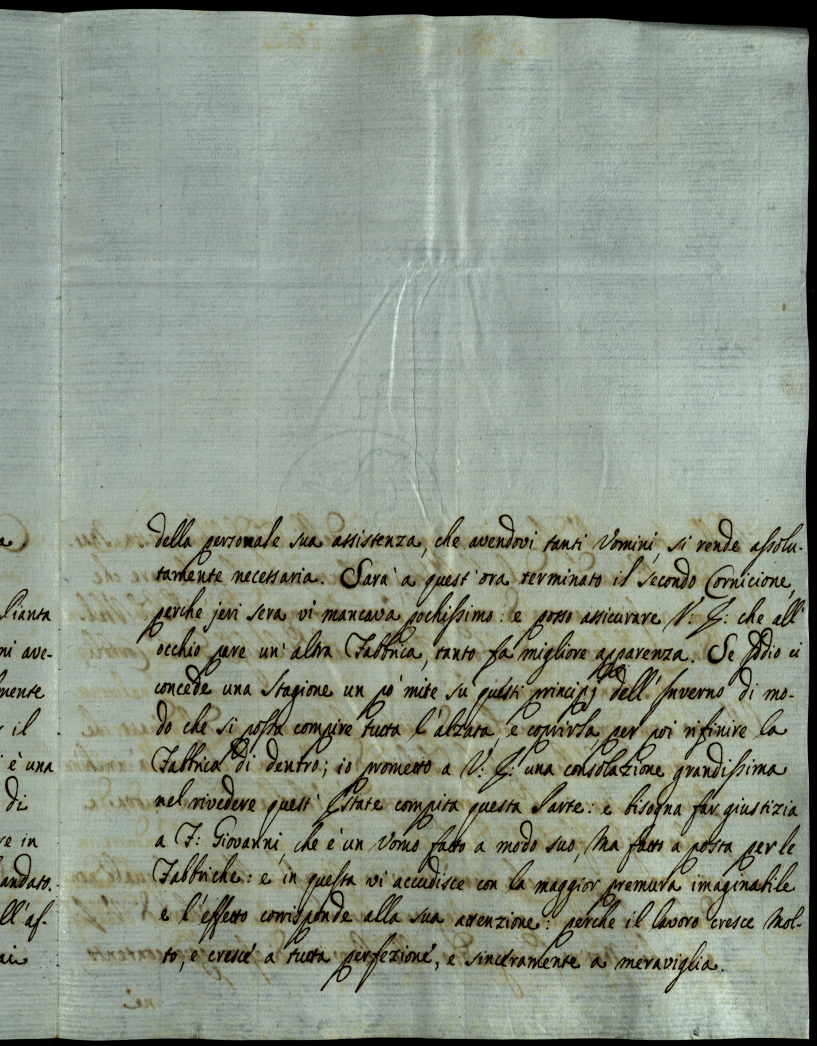 a
Pianta
ni ave-
mente
r il
i è una
di
re in
andato.
ll'af-
della personale sua assistenza, che avendovi tanti Uomini, si rende assolu-
tamente necessaria. Sarà a quest'ora terminato il secondo Cornicione,
perche jeri sera vi mancava pochissimo: e posso assicurare V: I: che all'
occhio pare un'altra Fabbrica, tanto fa migliore apparenza. Se Iddio ci
concede una Stagione un po' mite su questi principj dell'Inverno di mo-
do che si possa compire tutta l'alzata, e coprirla per poi rifinire la
Fabbrica di dentro; io prometto a V: I: una consolazione grandissima
nel rivedere quest'Estate compita questa Parte: e bisogna far giustizia
a F: Giovanni, che è un Uomo fatto a modo suo, Ma fatto a posta per le
Fabbriche: e in questa vi accudisce con la maggior premura imaginabile
e l'effetto corrisponde alla sua attenzione: perche il lavoro cresce Mol-
to, e cresce a tutta perfezione, e sinceramente a meraviglia.